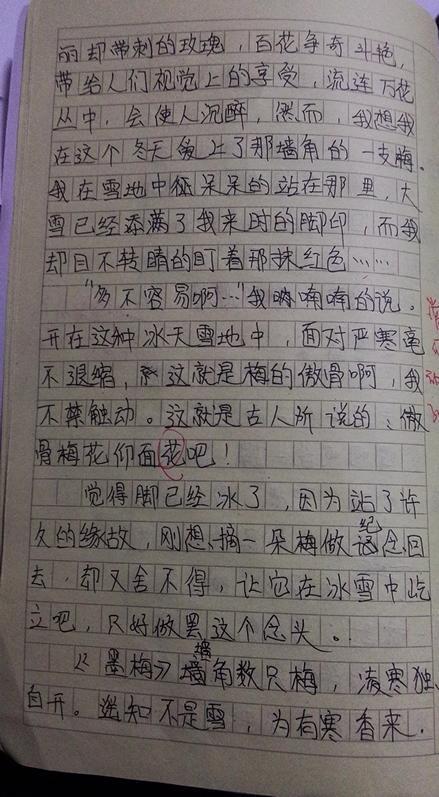 丽却带刺的玫瑰，百花争奇斗艳，
带给人们视觉上的享受，流连万花
丛中，会使人沉醉，然而，我想我
在这个冬天爱上了那墙角的一支梅。
我在雪地中呆呆的站在那里，大
雪已经添满了我来时的脚印，而我
却目不转睛的盯着那抹红色……
"多不容易啊…"我喃喃的说。
开在这种冰天雪地中，面对严寒毫
不退缩，这就是梅的傲骨啊，我
不禁触动。这就是古人所说的、傲
骨梅花仰面花吧！
觉得脚已经冰了，因为站了许
久的缘故，刚想摘一朵梅做纪念回
去，却又舍不得，让它在冰雪中屹
立吧，只好做罢这个念头。
《墨梅》墙角数只梅，凌寒独
自开。遥知不是雪，为有寒香来．